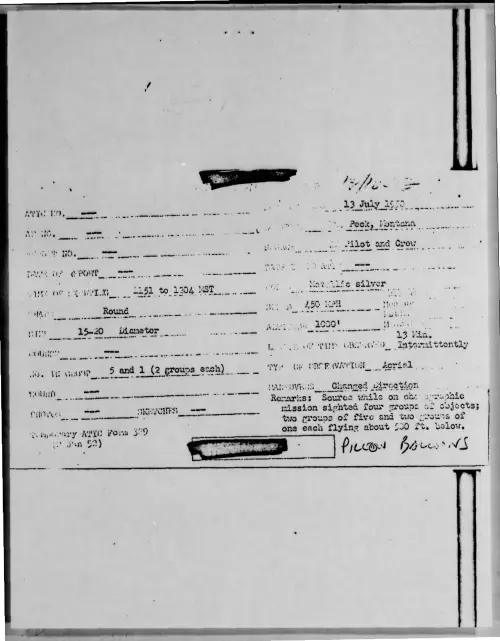 13 July 1950
ATIC NO. --
Peck, Montana
AF NO. --
Pilot and Crew
REPORT NO. --
DATE OF REPORT --
TIME OF SIGHTING 1151 to 1304 MST
COLOR Metallic silver
SHAPE Round
SPEED 450 MPH
SIZE 15-20 Diameter
ALTITUDE 1000'
COURSE --
LENGTH OF TIME OBSERVED 13 Min. Intermittently
NO. IN GROUP 5 and 1 (2 groups each)
TYPE OF OBSERVATION Aerial
SOUND --
MANEUVERS Changed Direction
PHOTOS -- SKETCHES --
Remarks: Source while on
mission sighted four groups of objects;
two groups of five and two groups of
one each flying about 500 ft. below.
Temporary ATIC Form 329
(2 Jan 52)